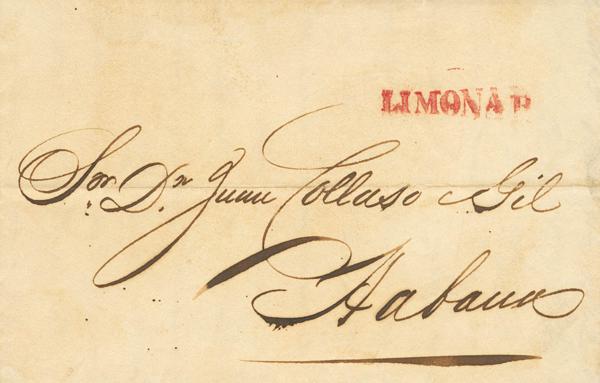 LIMONAR
Sor. Dn. Juan Collaso Gil
Habana